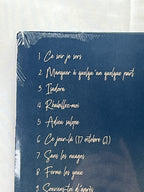 1 Ce soir je sors
2 Manquer à quelqu'un quelque part
3 Isadora
4 Rhabillez-moi
5 Adieu salope
6 Ce jour-là (17 octobre 61)
7 Sans les nuages
8 Ferme les yeux
9 Souviens-toi d'après